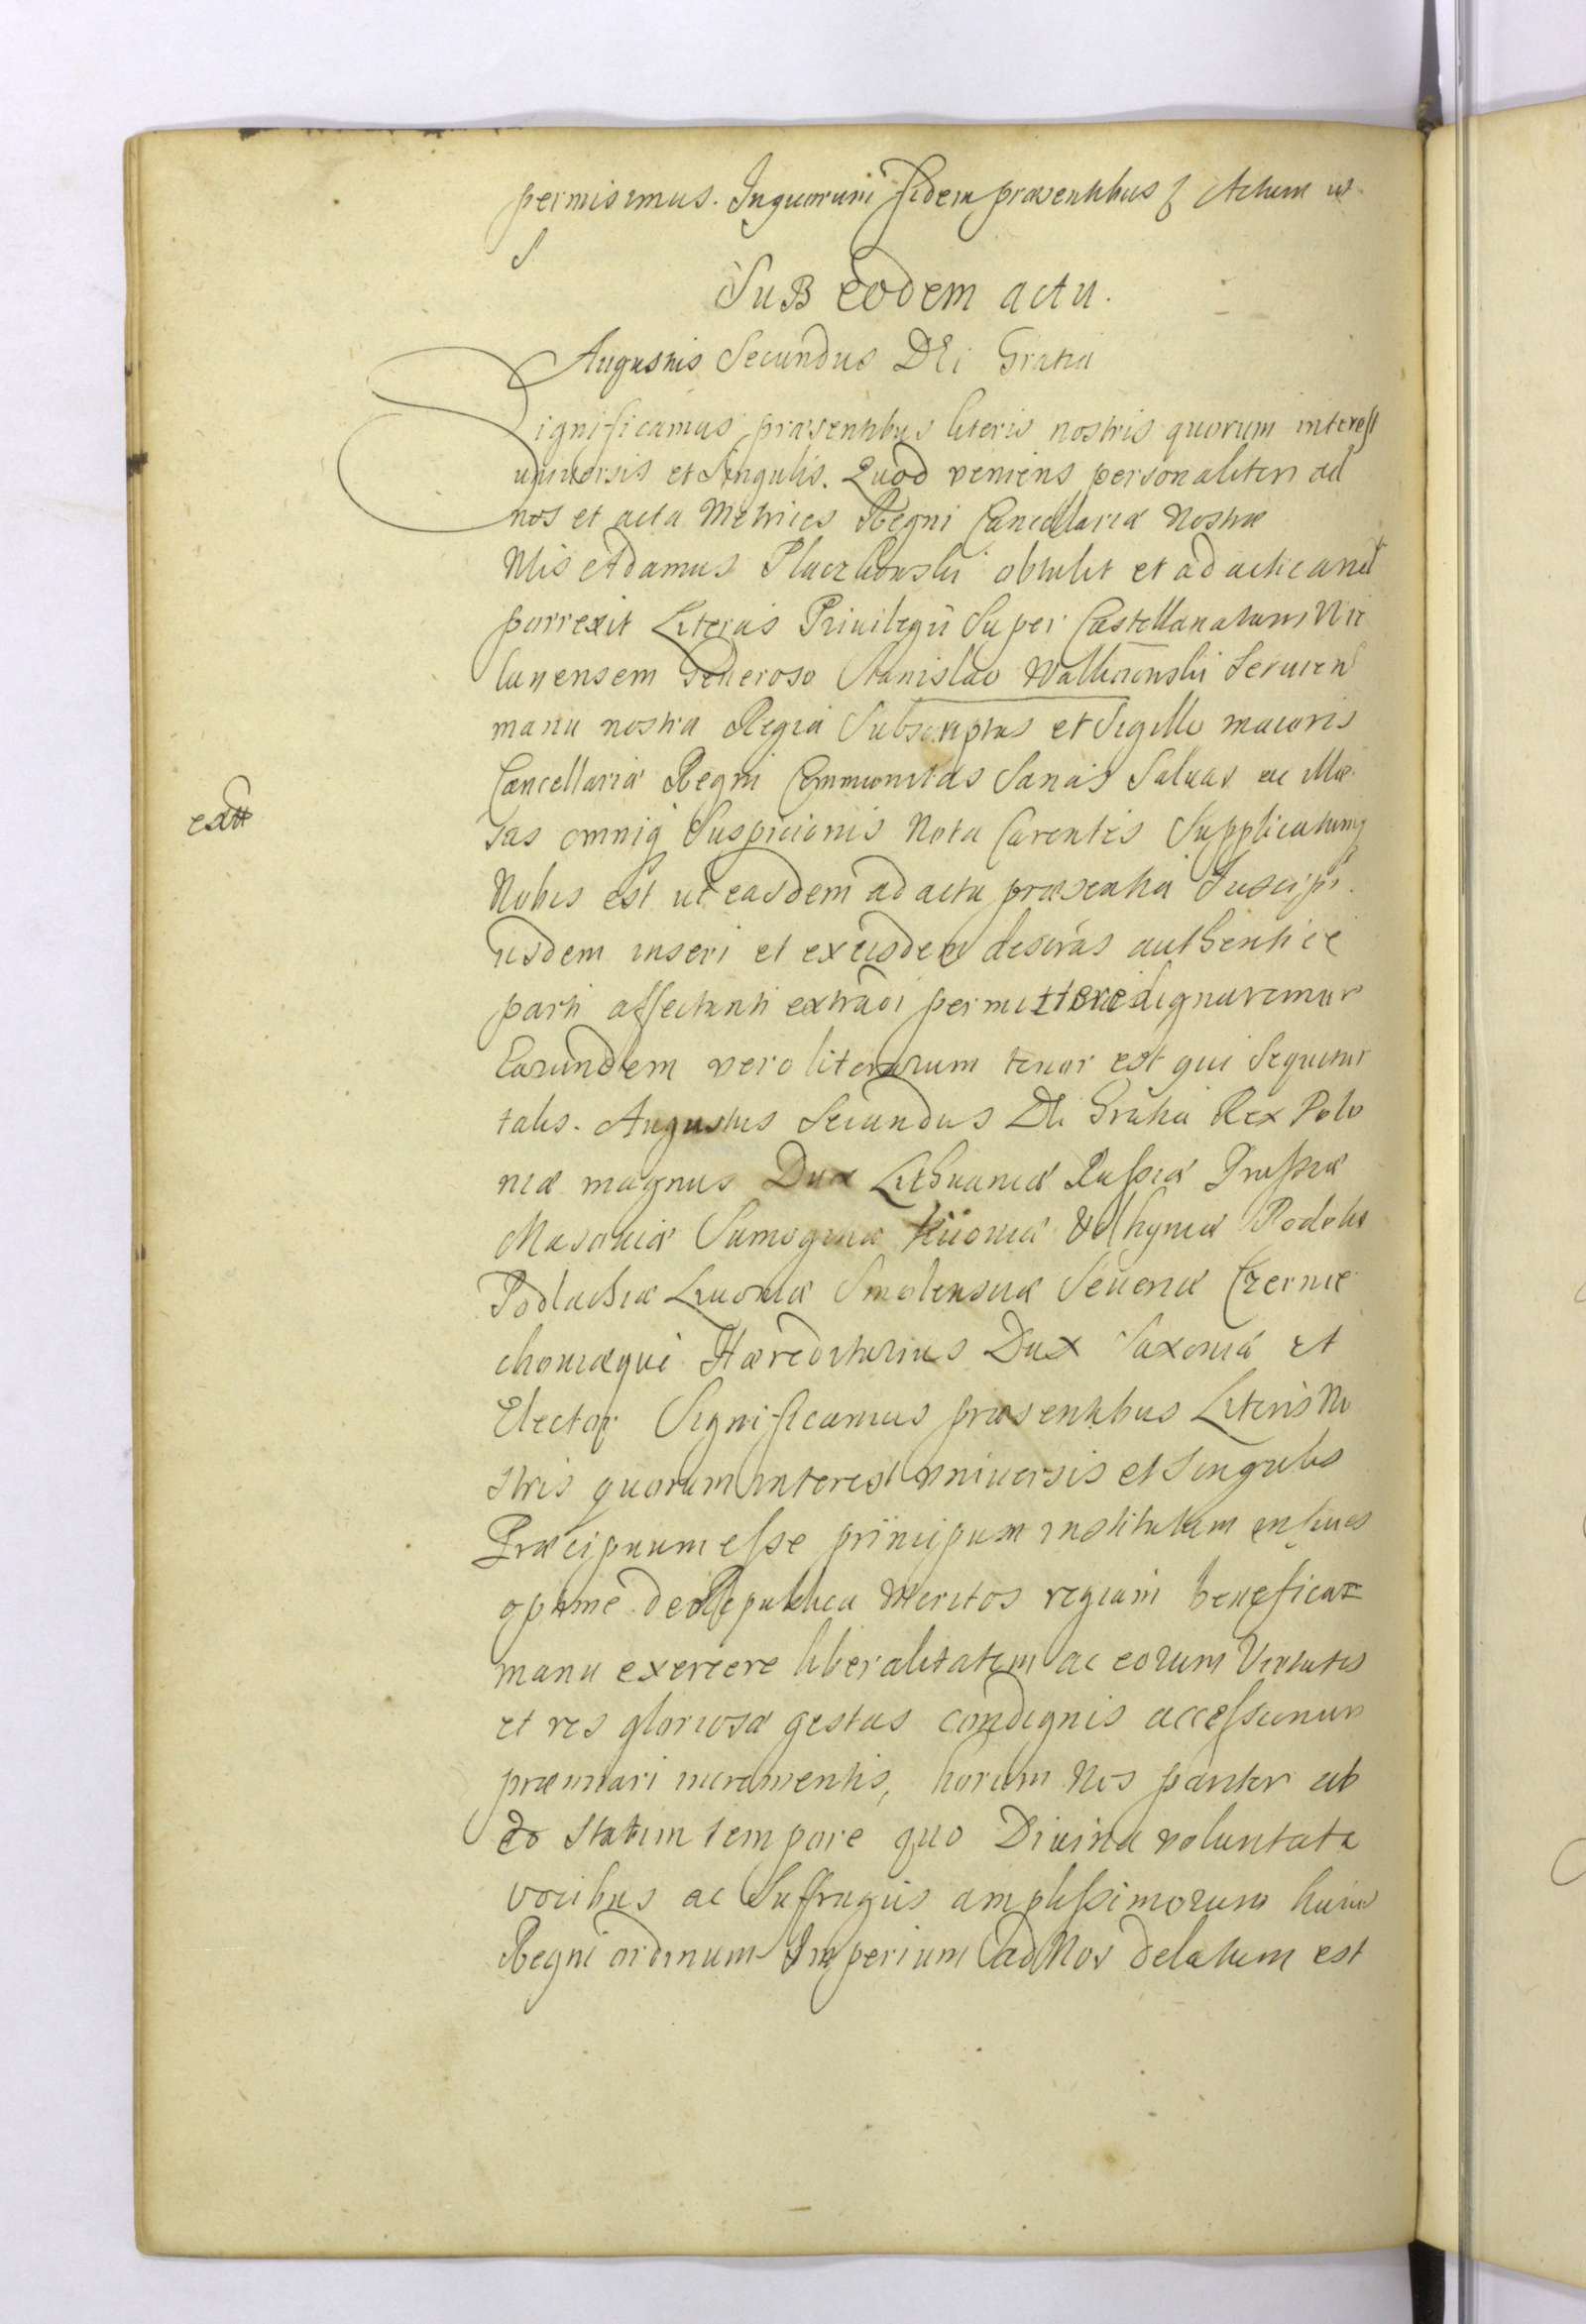 permisimus. In quorum fidem præsentibus Actum ut
S
SuB eodem actu.
Augustus Secundus DEi Gratia
Significamus præsentibus literis nostris quorum interest
universis et Singulis. Quod veniens personaliter ad
nos et acta Metrices Regni Cancellariæ Nostræ
Nlis Adamus obtulit et ad acticand
porrexit Literas Priuilegii Super Castellanatum Vie
lunensem Generoso Stanislao Seruien
manu nostra Regia Subscriptas et Sigillo maioris
Cancellariæ Regni Communitas Sanas Saluas ac Illæ
extt
sas omniq Suspicionis Nota Carentes Supplicatumq
Nobis est ut easdem ad acta præsentia Suscipi
iisdem inseri et ex eisdem descras authentice
parti affectanti extradi permittere dignaremur
Earundem vero literarum tenor est qui Sequitur
talis. Augustus Secundus DEi Gratia Rex Polo
niæ magnus Dux Lithuaniæ Russiæ Prussiæ
Masoviæ Samogitiæ Kiioviæ Volhyniæ Podoliæ
Podlachiæ Livoniæ Smolensciæ Seueriæ Czernie
choviæque Hæreditarius Dux Saxoniæ et
Elector Significamus præsentibus Literis No
stris quorum interest vniuersis et Singulis
Præcipuum esse principum institutum in suos
optime de Republica Meritos regiam benefica
manu exercere liberalitatem ac eorum Virtutes
et res gloriose gestas condignis accessionum
præmiari incrementis, horum Nos pariter ab
eo statim tempore quo Diuina voluntate
vocibus ac Suffragiis amplissimorum huius
Regni ordinum Imperium ad Nos delatum est